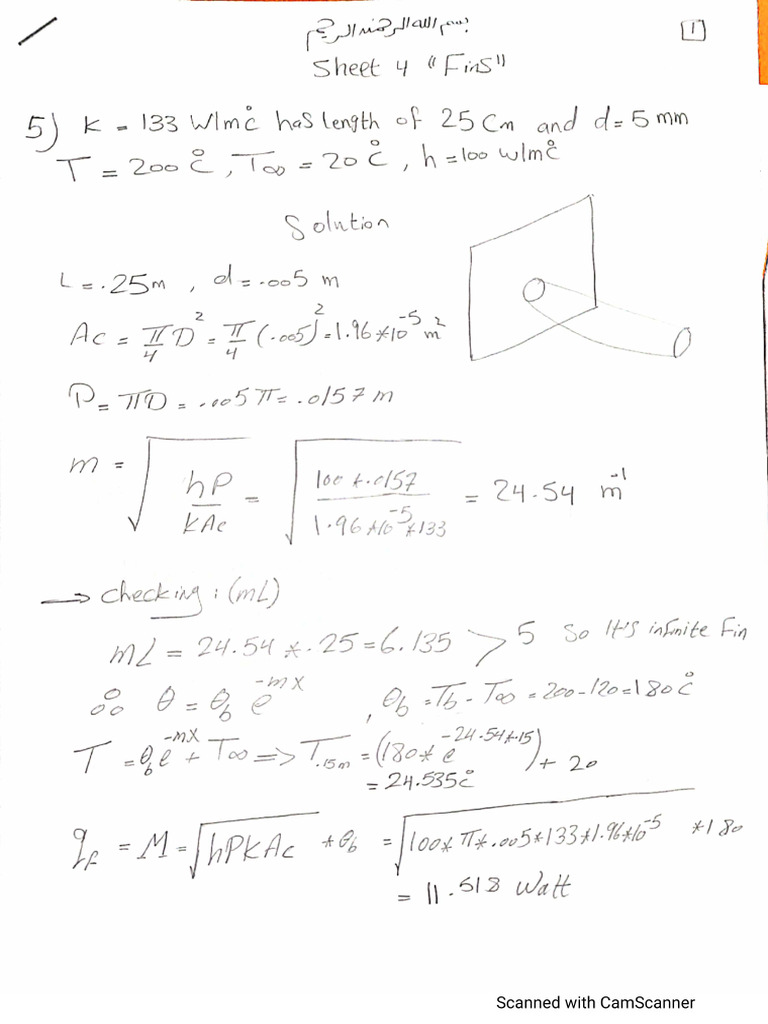 بسم الله الرحمن الرحيم
1
Sheet 4 "Fins"
5) K = 133 W/m°c has length of 25 Cm and d = 5 mm
T = 200 °C , T∞ = 20 °C , h = 100 w/m°c
Solution
L = .25m , d = .005 m
Ac = π/4 D² = π/4 (.005)² = 1.96 * 10⁻⁵ m²
P = πD = .005 π = .0157 m
m = √(hP/kAc) = √(100 * .0157 / 1.96 * 10⁻⁵ * 133) = 24.54 m⁻¹
→ checking : (mL)
mL = 24.54 * .25 = 6.135 > 5 So It's infinite Fin
∴ θ = θb e^-mx , θb = Tb - T∞ = 200 - 120 = 180 °C
T = θb e^-mx + T∞ => T.15m = (180 * e^-24.54*.15) + 20
= 24.535 °c
qf = M = √hPKAc * θb = √100 * π * .005 * 133 * 1.96 * 10⁻⁵ * 180
= 11.518 Watt
Scanned with CamScanner